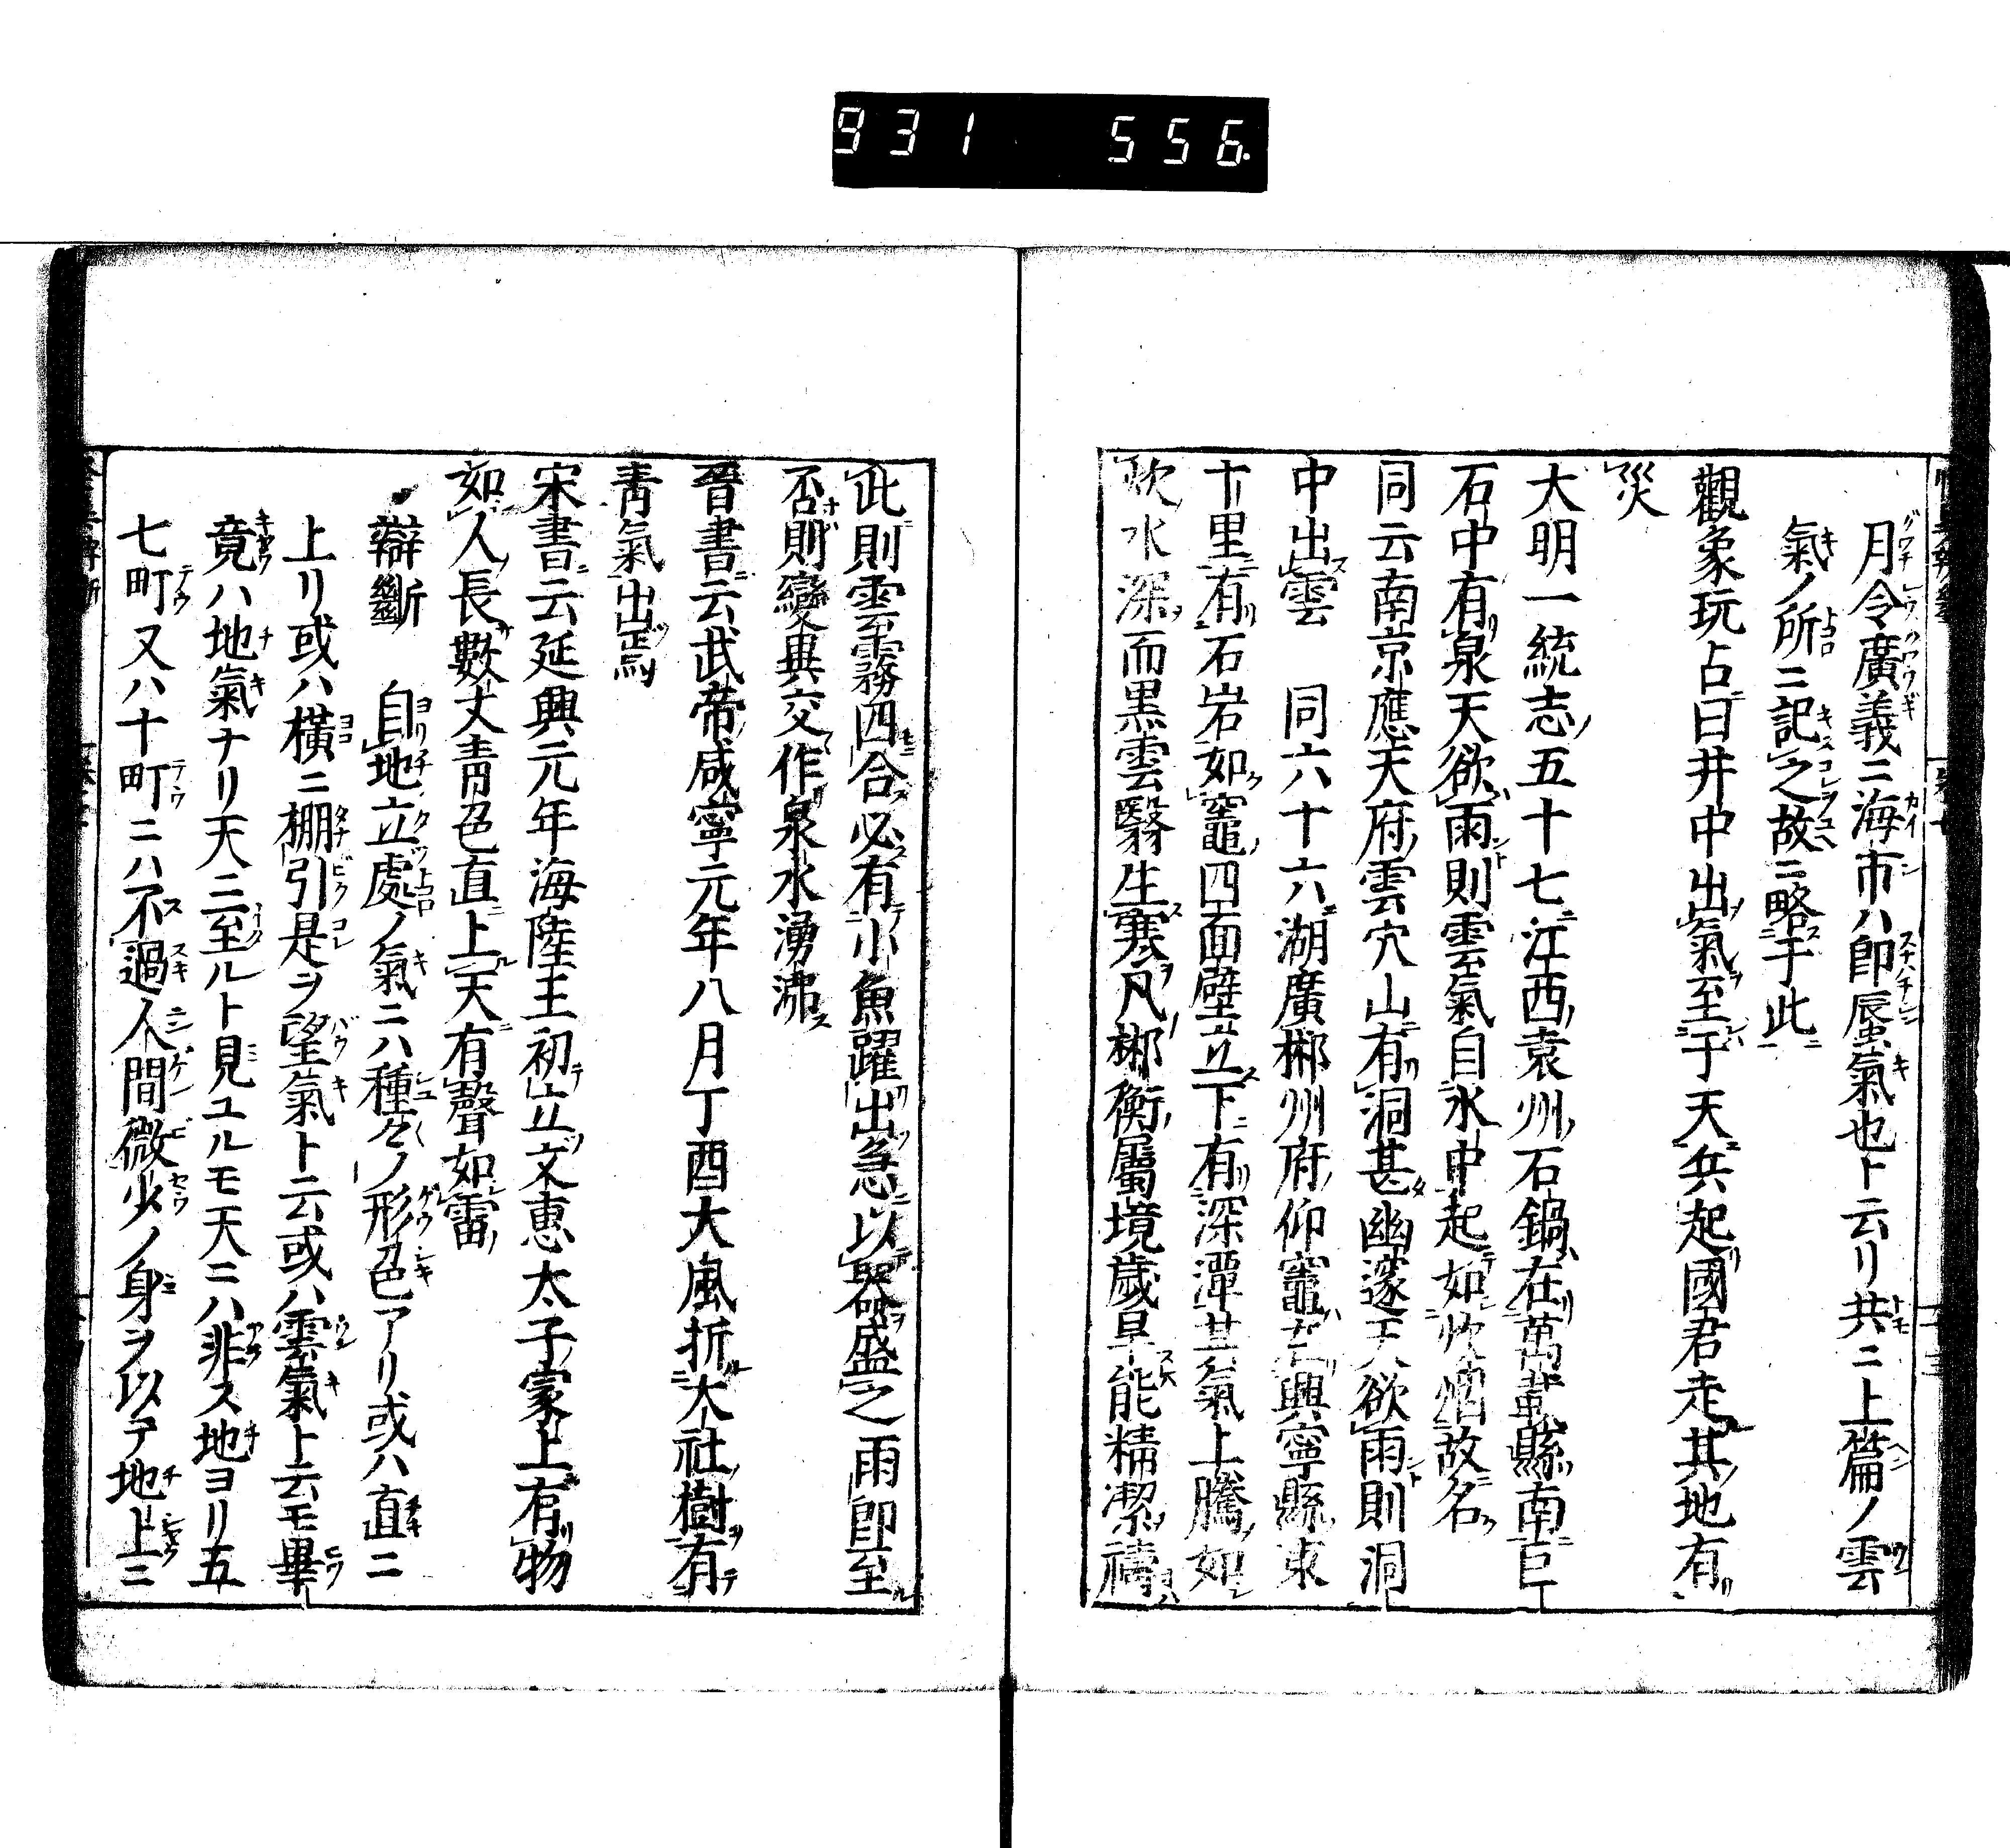 931 556.
月令廣義ニ海市ハ即蜃氣也ト云リ共ニ上篇ノ雲
氣ノ所ニ記之故ニ略于此
觀象玩占曰井中出氣至于天兵起國君走其地有
災
大明一統志五十七江西袁州石鍋在萬載縣南巨
石中有泉天欲雨則雲氣自水中起如炊烟故名
同云南京應天府雲穴山有洞甚幽邃天欲雨則洞
中出雲 同六十六湖廣郴州府仰竈在興寧縣東
十里有石岩如竈四面壁立下有深潭其氣上騰如
炊水深而黒雲翳生寒凡郴衡屬境歲旱能精潔禱
此則雲霧四合必有小魚躍出急以器盛之雨卽至
否則變異交作泉水湧沸
晉書云武帝咸寧元年八月丁酉大風折大社樹有
靑氣出焉
宋書云延興元年海陵王初立文惠太子冢上有物
如人長數丈靑色直上天有聲如雷
辯斷 自地立處ノ氣ニハ種々ノ形色アリ或ハ直ニ
上リ或ハ横ニ棚引是ヲ望氣ト云或ハ雲氣ト云モ畢
竟ハ地氣ナリ天ニ至ルト見ユルモ天ニハ非ス地ヨリ五
七町又ハ十町ニハ不過人間微少ノ身ヲ以テ地上ニ